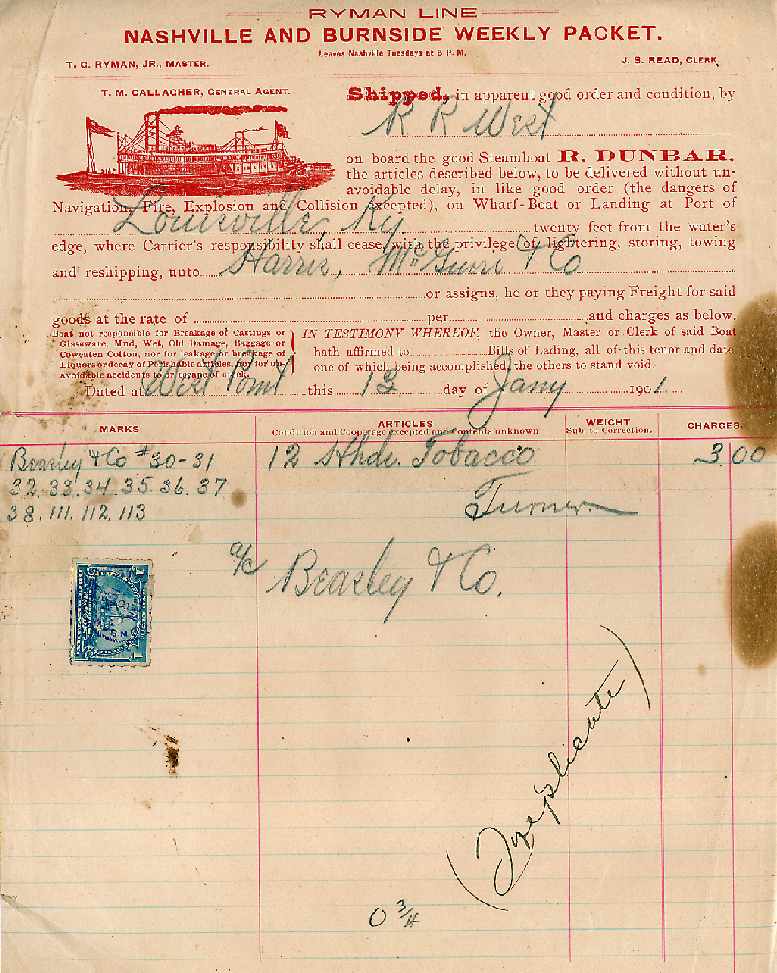 RYMAN LINE
NASHVILLE AND BURNSIDE WEEKLY PACKET.
Leaves Nashville Tuesdays at 5 P. M.
T. G. RYMAN, JR., MASTER.
J. S. READ, CLERK.
T. M. GALLAGHER, GENERAL AGENT.
Shipped, in apparent good order and condition, by
R R West
on board the good Steamboat R. DUNBAR.
the articles described below, to be delivered without un-
avoidable delay, in like good order (the dangers of
Navigation, Fire, Explosion and Collision excepted), on Wharf-Boat or Landing at Port of
Louisville, Ky twenty feet from the water's
edge, where Carrier's responsibility shall cease, with the privilege of lightering, storing, towing
and reshipping, unto Harris, & Co
or assigns, he or they paying Freight for said
goods at the rate of per and charges as below.
Boat not responsible for Breakage of Castings or
Glassware, Mud, Wet, Old Damage, Baggage or
Cotton, nor for leakage or breakage of
Liquors or decay of Perishable articles, nor for un-
avoidable accidents to or escape of
IN TESTIMONY WHEREOF, the Owner, Master or Clerk of said Boat
hath affirmed to Bills of Lading, all of this tenor and date
one of which being accomplished, the others to stand void.
Dated at West Point this 13 day of Jany 1901
MARKS
ARTICLES
Condition and Cooperage excepted and Contents unknown
WEIGHT
Subj. to Correction.
CHARGES.
Beasley & Co #30-31 12 Hhds. Tobacco 3 00
32. 33. 34. 35. 36. 37
38. 111. 112. 113 Turner
a/c Beasley & Co.
(Triplicate)
0 3/4